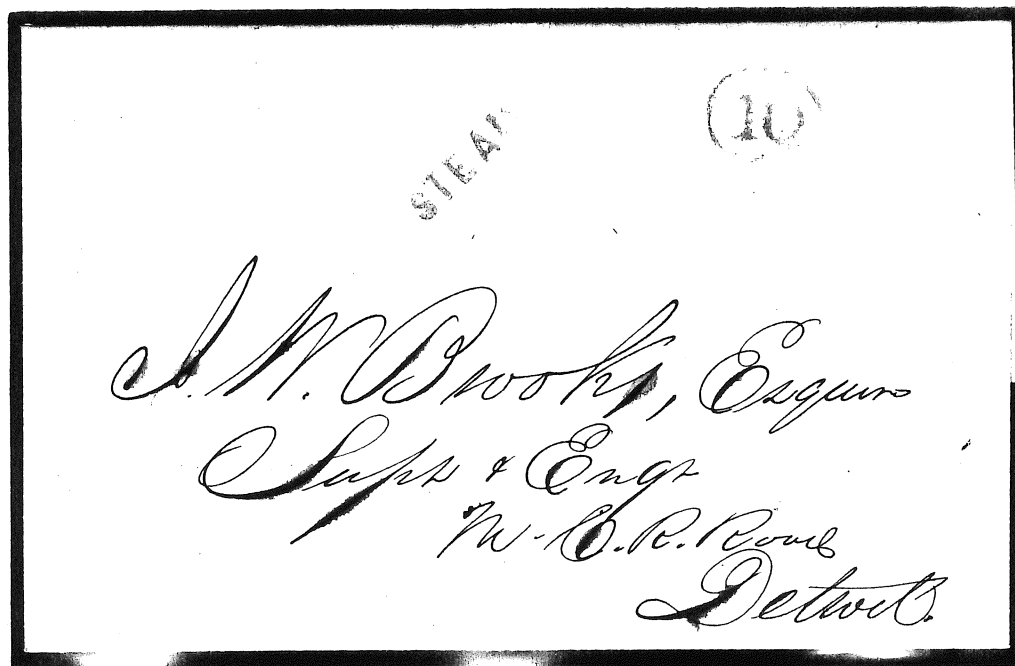 STEAM
10
J. W. Brooks, Esquire
Supt & Engr
M. C. R. Road
Detroit.